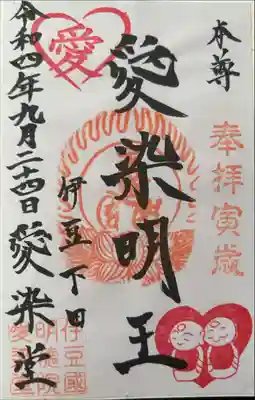 奉拝寅歳
本尊
愛染明王
伊豆下田
愛
令和四年九月二十四日愛染堂
伊豆國
明徳院
愛染堂